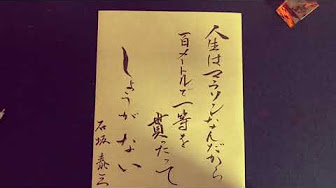 人生はマラソンなんだから
百メートルで一等を
貰ったって
しょうがない
石坂泰三